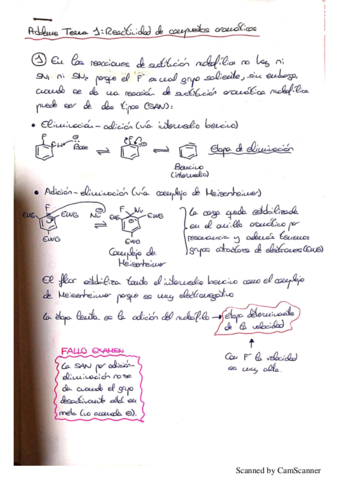 Addenda Tema 1: Reactividad de compuestos aromáticos
① En las reacciones de sustitución nucleofílica no hay ni
SN₁ ni SN₂ porque el F es mal grupo saliente, sin embargo,
cuando se da una reacción de sustitución aromática nucleofílica
puede ser de dos tipos (SAN):
• Eliminación-adición (vía intermedio bencino)
F
H
Base
F
Etapa de eliminación
Bencino
(intermedio)
• Adición-eliminación (vía complejo de Meisenheimer)
EWG
F
EWG
EWG
Nu
EWG
F
Nu
EWG
EWG
Complejo de
Meisenheimer
la carga queda estabilizada
en el anillo aromático por
resonancia y además tenemos
grupos atractores de electrones (EWG)
El flúor estabiliza tanto el intermedio bencino como el complejo
de Meisenheimer porque es muy electronegativo
la etapa lenta es la adición del nucleófilo → etapa determinante
de la velocidad
Con F la velocidad
es muy alta.
FALLO EXAMEN
la SAN por adición-
eliminación no se
da cuando el grupo
desactivante está en
meta (no acomoda ⊖).
Scanned by CamScanner